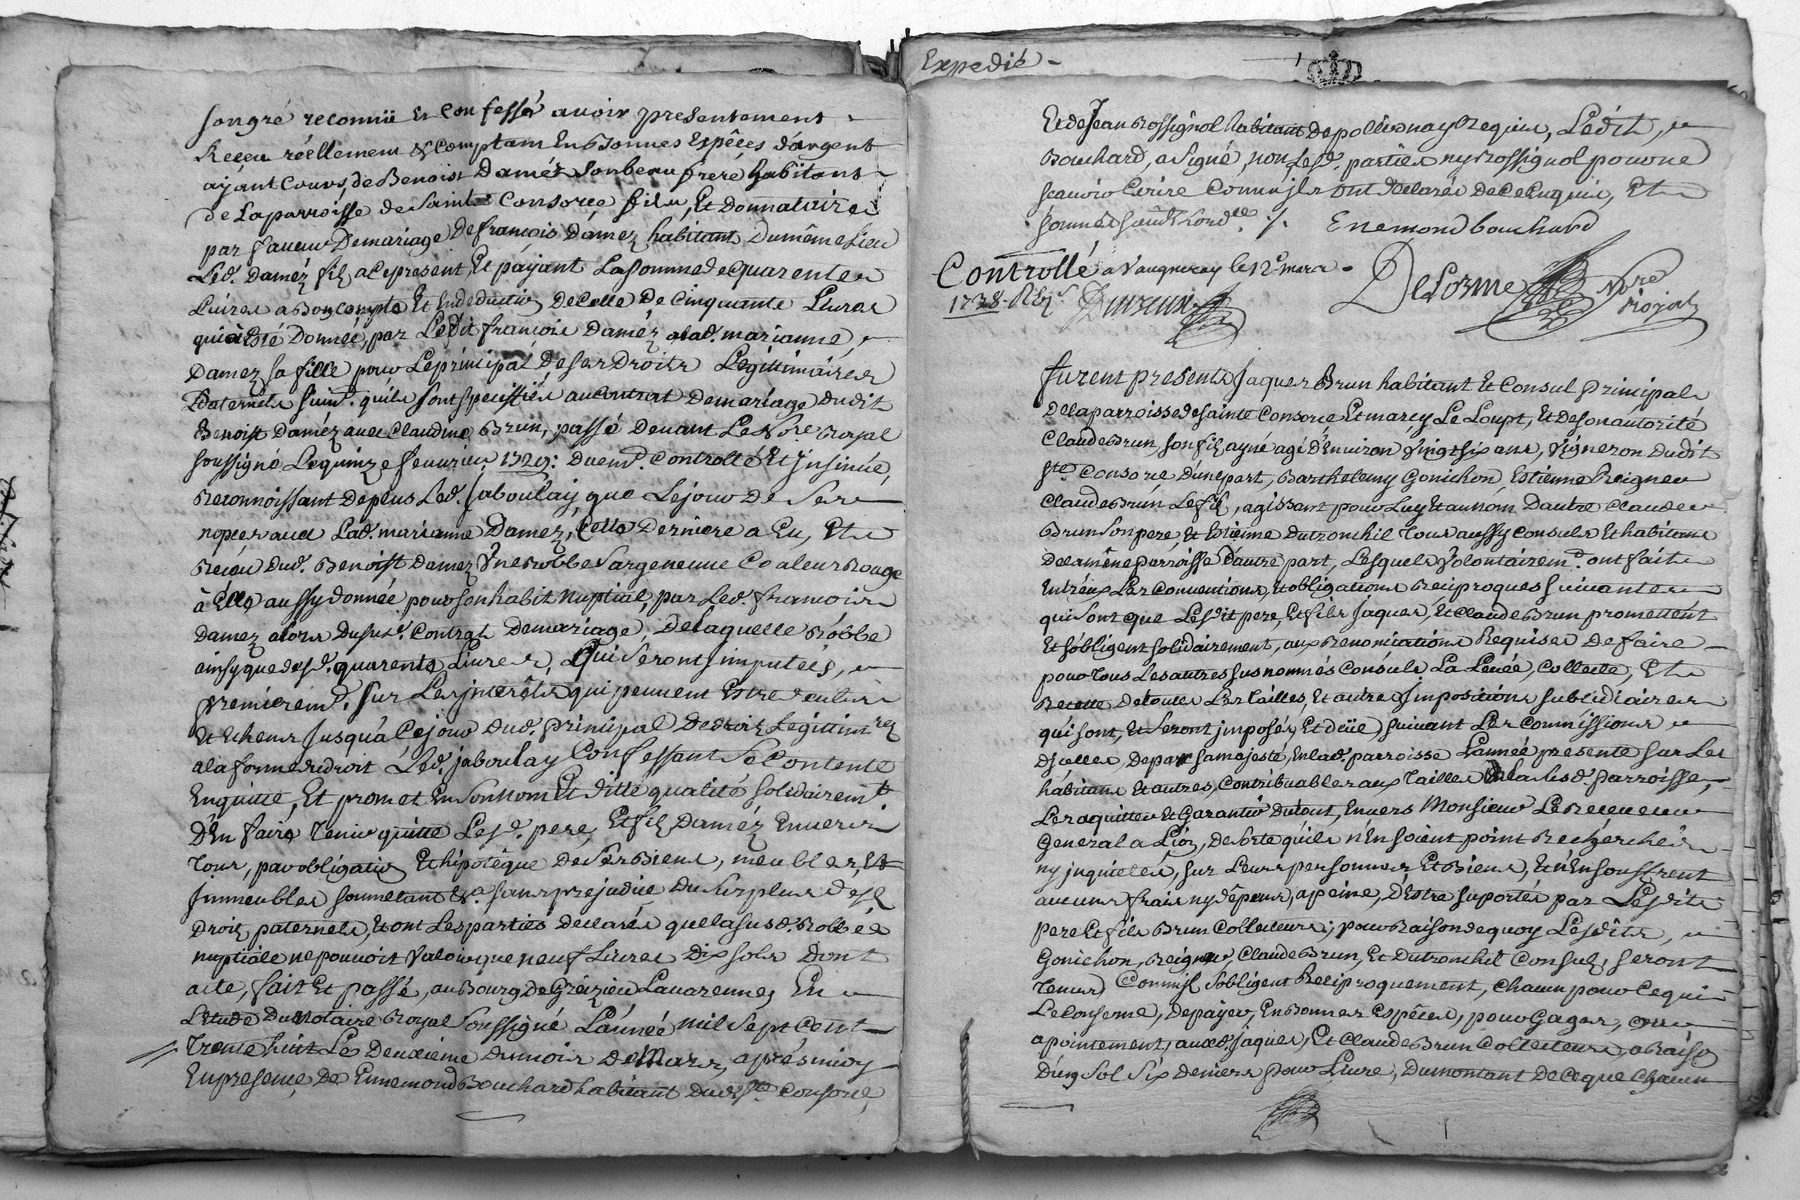 son gré reconnû et confessé avoir presentement
Receu réellement & comptant En Bonnes Espêces d'argent
ayant Cours, de Benoist Daméz son beau frere habitant
de La parroisse de Sainte Consorce fils, Et Donnataire
par faveur De mariage De françois Daméz habitant Du même Lieu
Led. Daméz fils a Ce present Et payant La somme de quarente
Livres a Bon compte Et En deduction de Celle De Cinquante Livres
qui a Esté Donnée, par Ledit françois Daméz a lad. marianne
Damez sa fille pour Le principal de ses Droits Légitimaires
Paternels suiv.t qu'ils sont speciffiés au Contrat De mariage dudit
Benoist Daméz avec Claudine Brun, passé Devant Le No.re Royal
soussigné Le quinze fevrier 1729: Duem.t Controllé Et Insinué,
Reconnoissant De plus Led. Jaboulay que Le jour De Ses
nopces avec Lad. marianne Damez, Cette Derniere a Eu, Et
Receu Dud. Benoist Damez Une Robbe Sarge Couleur Rouge
à Elle aussy donnée pour son habit Nuptial, par Led. francois
Damez alors Dusus.d Contrat De mariage, De Laquelle Robbe
ainsy que desd. quarente Livres, qui Seront imputées,
premierem.t sur Les interêts qui peuvent Estre
Et Echeus Jusqu'à Ce jour Dud. principal De droits Legitim.res
a la forme du droit Led. jaboulay Confessant Se Contente
En quitte, Et promet En Son nom Et ditte qualité solidairem.t
D'En faire Tenir quitte Lesd. pere, Et fils Daméz Envers
Tous, par obligation Et hipotêque de Ses Biens, meubles, Et
Immeubles soumettant &.a sans prejudice Du Surplus desd.
Droits paternels, Et ont Les parties Declarés que la susd. Robbe
nuptiale ne pouvoit Valoir que neuf Livres Dix sols Dont
acte, fait Et passé, au Bourg De Grézieu Lavarenne, En
L'étude Du Notaire Royal Soussigné L'année mil Sept Cent
Trente huit Le Deuxième du mois De Mars, aprés midy
En presence, De Ennemond Bouchard habitant Dud. Ste. Consorce,
Expedié
Et de Jean Rossignol habitant De pollionnay Requis, Ledit
Bouchard, a signé, non Lesd. parties ny Rossignol pour ne
scavoir Ecrire Comme ils ont declarés de Ce Enquis, Et
Sommés suiv.t L'ord.ce ./. Enemond bouchard
Controllé a Vaugneray le 12.e mars
1738
DeLorme No.re
Royal
furent presents Jaques Brun habitant Et Consul Principal
De La parroisse de Sainte Consorce Et marcy Le Loupt, Et De Son autorité
Claude Brun, son fils ayné agé d'Environ Vingt six ans, Vigneron Dudit
Ste. Consorce D'une part, Barthelemy Gonichon, Estienne Reigner
Claude Brun Le fils, agissant pour Luy Et au nom D'autre Claude
Brun Son pere, Et Estienne Dutronchil Tous aussy Consuls Et habitans
De La même Parroisse D'autre part, Lesquels Volontairem.t ont fait
Entréux Les Conventions, Et obligations Reciproques suivantes
qui Sont que Lesdit pere, Et fils Jaques, Et Claude Brun promettent
Et s'obligent solidairement, aux Renonciations Requises De faire
pour Tous Les autres susnommés Consuls La Levée, Collecte, Et
Recette De toutes Les tailles, Et autres Impositions subsidiaires
qui sont, Et Seront imposés, Et Düe, suivant Les Commissions
d'icelles, De par sa majesté, En lad. parroisse L'année presente sur Les
habitans Et autres, Contribuables aux Tailles De lad. parroisse,
Les aquitter Et Garantir Du tout, Envers Monsieur Le Receveur
General a Lion, De Sorte qu'ils n'En soient point Rechérchés
ny inquietés, sur Leurs personnes, Et Biens, Et n'En souffrent
aucuns frais ny dépens, a peine, d'Estre suportés par Lesdits
Pere Et fils Brun Collecteurs, pour Raison de quoy Lesdits,
Gonichon, Reigner, Claude Brun, Et Dutronchil Consuls, seront
Tenus, Comm'ils S'obligent Reciproquement, Chacun pour Ce qui
Le Conserne, De payer, En Bonnes Espêces, pour Gages, ou
apointement, auxd. Jaques, Et Claude Brun Collecteurs, a Raison
D'un Sol Six Deniers pour Livre, Du montant De Ce que Chacun